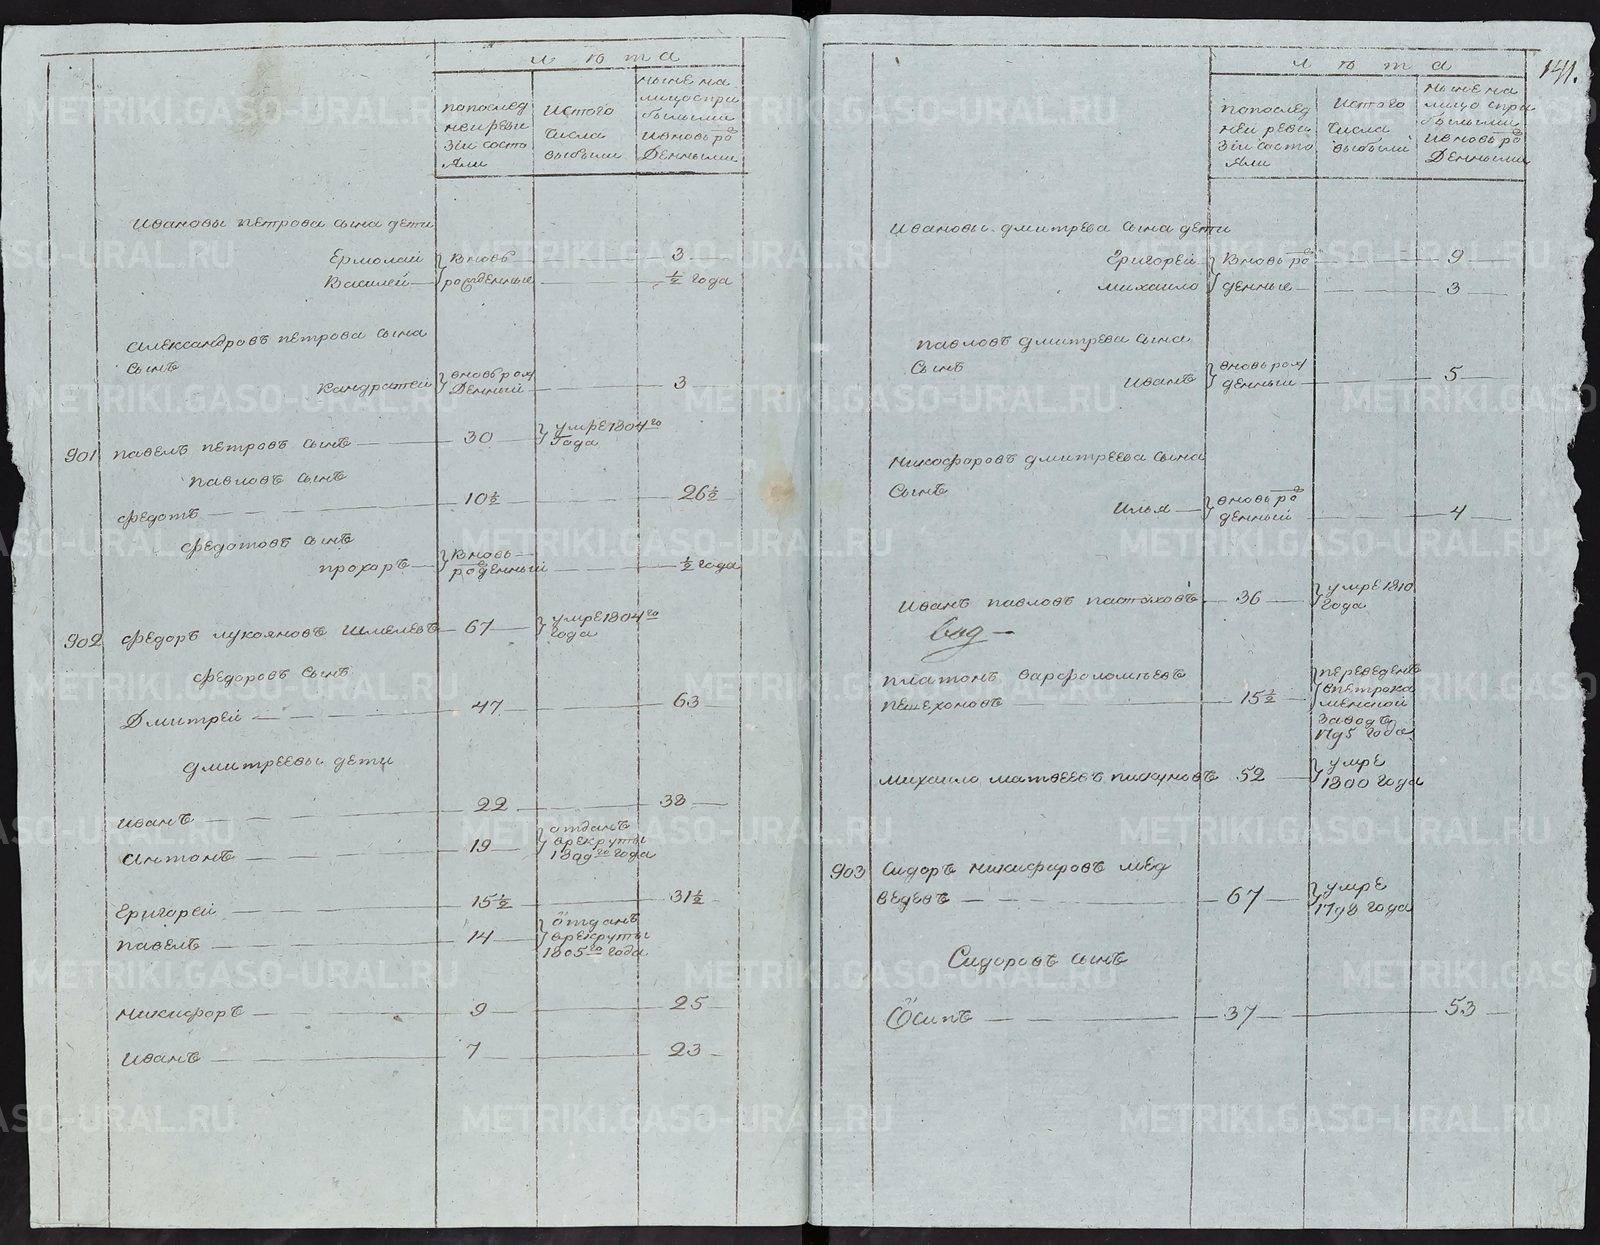 лѣта
попослед
неи реви
зіи состо
яли
Истого
числа
выбыли
нынѣ на
лицо спри
былыми
ивновь ро
денными
Ивановы петрова сына дети
Ермолай вновь 3
Василей рожденные ½ года
Александровъ петрова сына
сынъ
Кандратей вновь рож
денный 3
901 павелъ петровъ сынъ 30 умре 1804го
года
павловъ сынъ
федотъ 10½ 26½
федотовъ сынъ
прохоръ вновь
роденный ½ года
902 федоръ лукояновъ шмелевъ 67 умре 1804го
года
федоровъ сынъ
Дмитрей 47 63
дмитреевы дети
иванъ 22 38
антонъ 19 отданъ
врекруты
1799го года
Григорей 15½ 31½
павелъ 14 отданъ
врекруты
1805го года
никифоръ 9 25
иванъ 7 23
141.
лѣта
попослед
неи реви
зіи состо
яли
Истого
числа
выбыли
нынѣ на
лицо спри
былыми
ивновь ро
денными
Ивановы дмитрева сына дети
Григорей вновь ро 9
михаило денные 3
павловъ дмитрева сына
сынъ
иванъ вновь рож
денный 5
никофоровъ дмитреева сына
сынъ
илья вновь ро
денный 4
иванъ павловъ пастуховъ 36 умре 1810
года
платонъ варфоломѣевъ
пешехоновъ 15½ переведенъ
впетрока
менской
заводъ
1795 года
михаило матвеевъ пискуновъ 52 умре
1800 года
903 сидоръ никифоровъ мед
ведевъ 67 умре
1798 года
Сидоровъ сынъ
Осипъ 37 53
METRIKI.GASO-URAL.RU